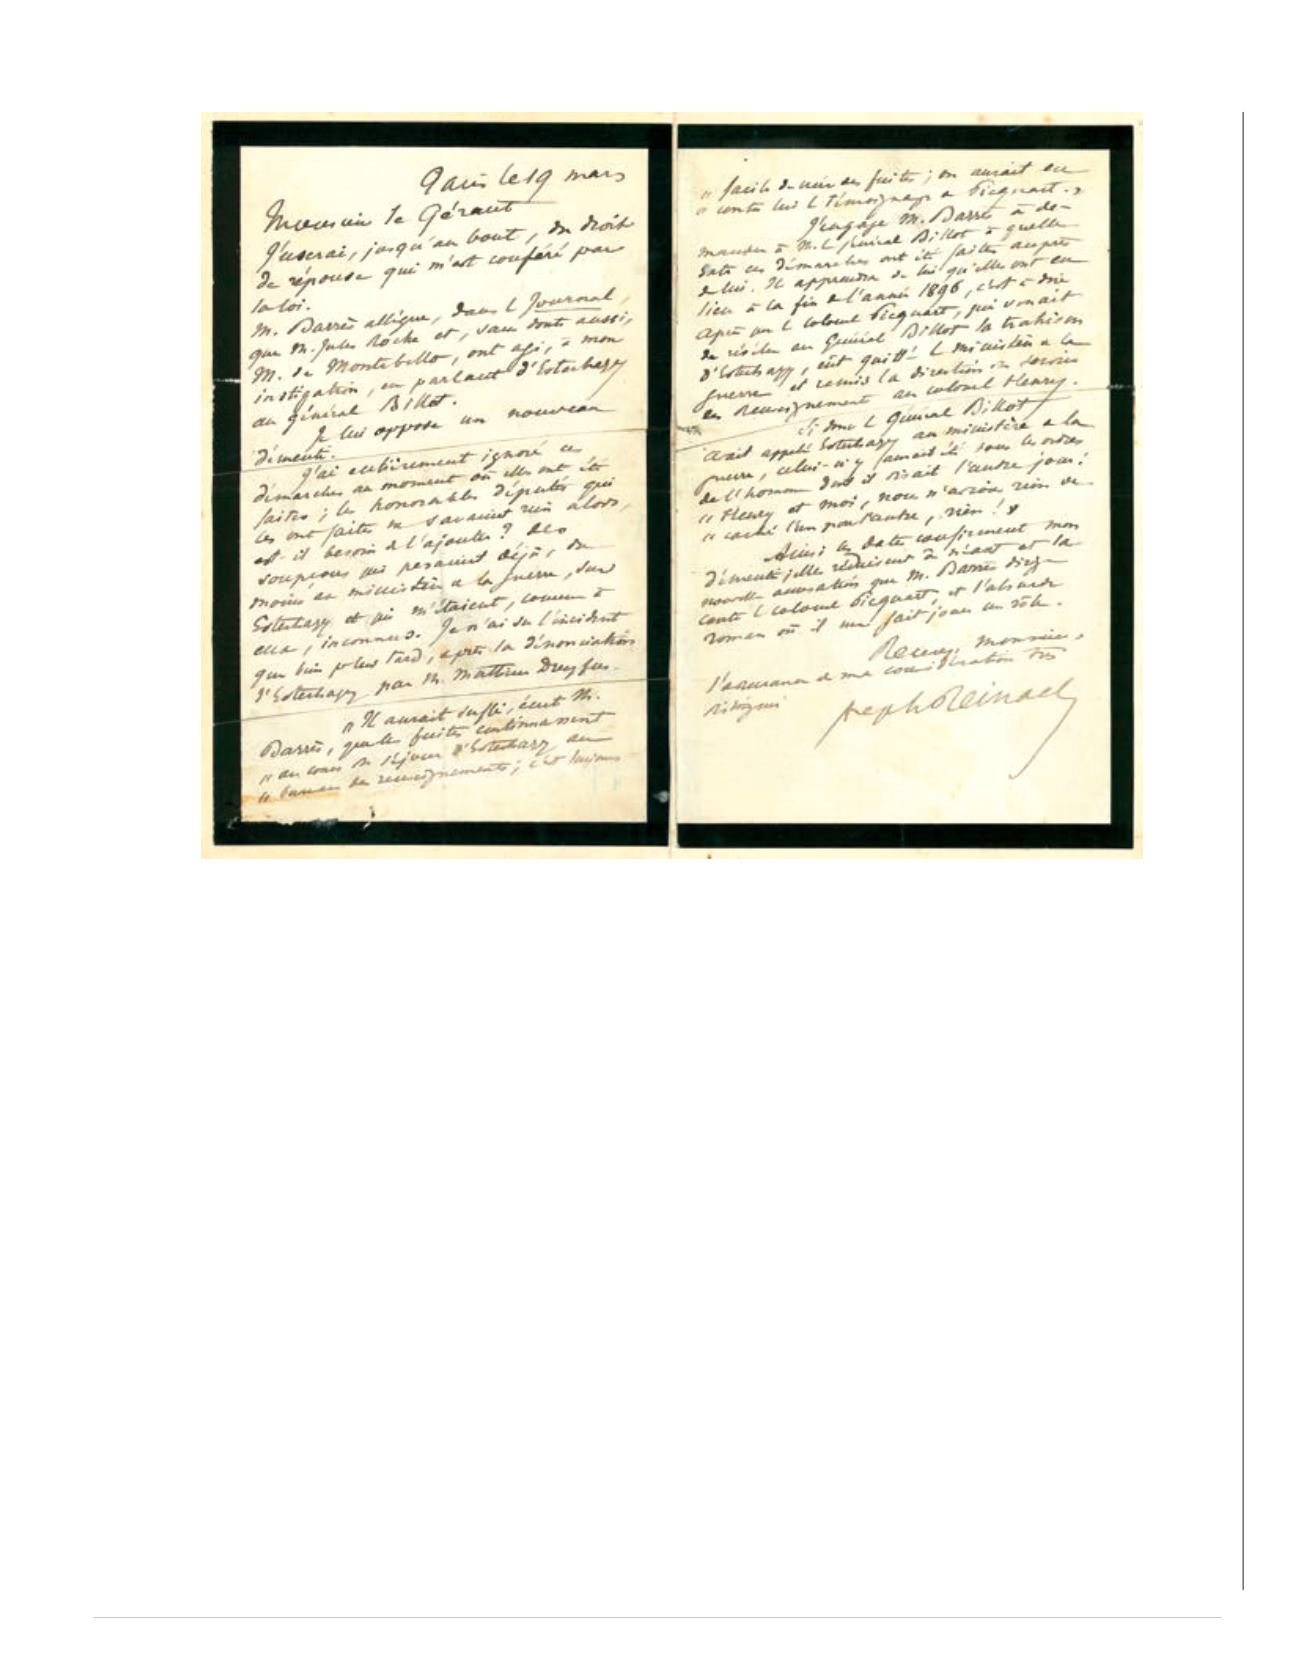 Paris le 19 mars
Monsieur le Gérant
J'userai, jusqu'au bout, du droit
de réponse qui m'est conféré par
la loi.
M. Barrès allègue, dans le Journal,
que M. Jules Roche et, sans doute aussi,
M. de Montebello, ont agi, à mon
instigation, en parlant d'Esterhazy
au général Billot.
Je lui oppose un nouveau
démenti.
J'ai entièrement ignoré ces
démarches au moment où elles ont été
faites ; les honorables députés qui
les ont faites ne savaient rien alors,
est-il besoin de l'ajouter ? des
soupçons qui pesaient déjà, du
moins au ministère de la guerre, sur
Esterhazy et qui m'étaient, comme à
eux, inconnus. Je n'ai su l'incident
que bien plus tard, après la dénonciation
d'Esterhazy par M. Mathieu Dreyfus.
" Il aurait suffi, écrit M.
Barrès, que les fuites continuassent
" au cours du séjour d'Esterhazy au
" bureau des renseignements ; c'est toujours
" facile de créer des fuites ; on aurait eu
" contre lui le témoignage de Picquart. "
J'engage M. Barrès à de-
mander à M. le général Billot à quelle
date ces démarches ont été faites auprès
de lui. Il apprendra de lui qu'elles ont eu
lieu à la fin de l'année 1896, c'est à dire
après que le colonel Picquart, qui venait
de révéler au Général Billot la trahison
d'Esterhazy, eût quitté le ministère de la
guerre et remis la direction du service
des Renseignements au colonel Henry.
Si donc le Général Billot
avait appelé Esterhazy au ministère de la
guerre, celui-ci y aurait été sous les ordres
de l'homme dont il disait l'autre jour :
" Henry et moi, nous n'avions rien de
" caché l'un pour l'autre, rien ! "
Ainsi les dates confirment mon
démenti ; elles réduisent à néant et la
nouvelle accusation que M. Barrès dirige
contre le colonel Picquart, et l'absurde
roman où il me fait jouer un rôle.
Recevez, Monsieur,
l'assurance de ma considération très
distinguée
Joseph Reinach